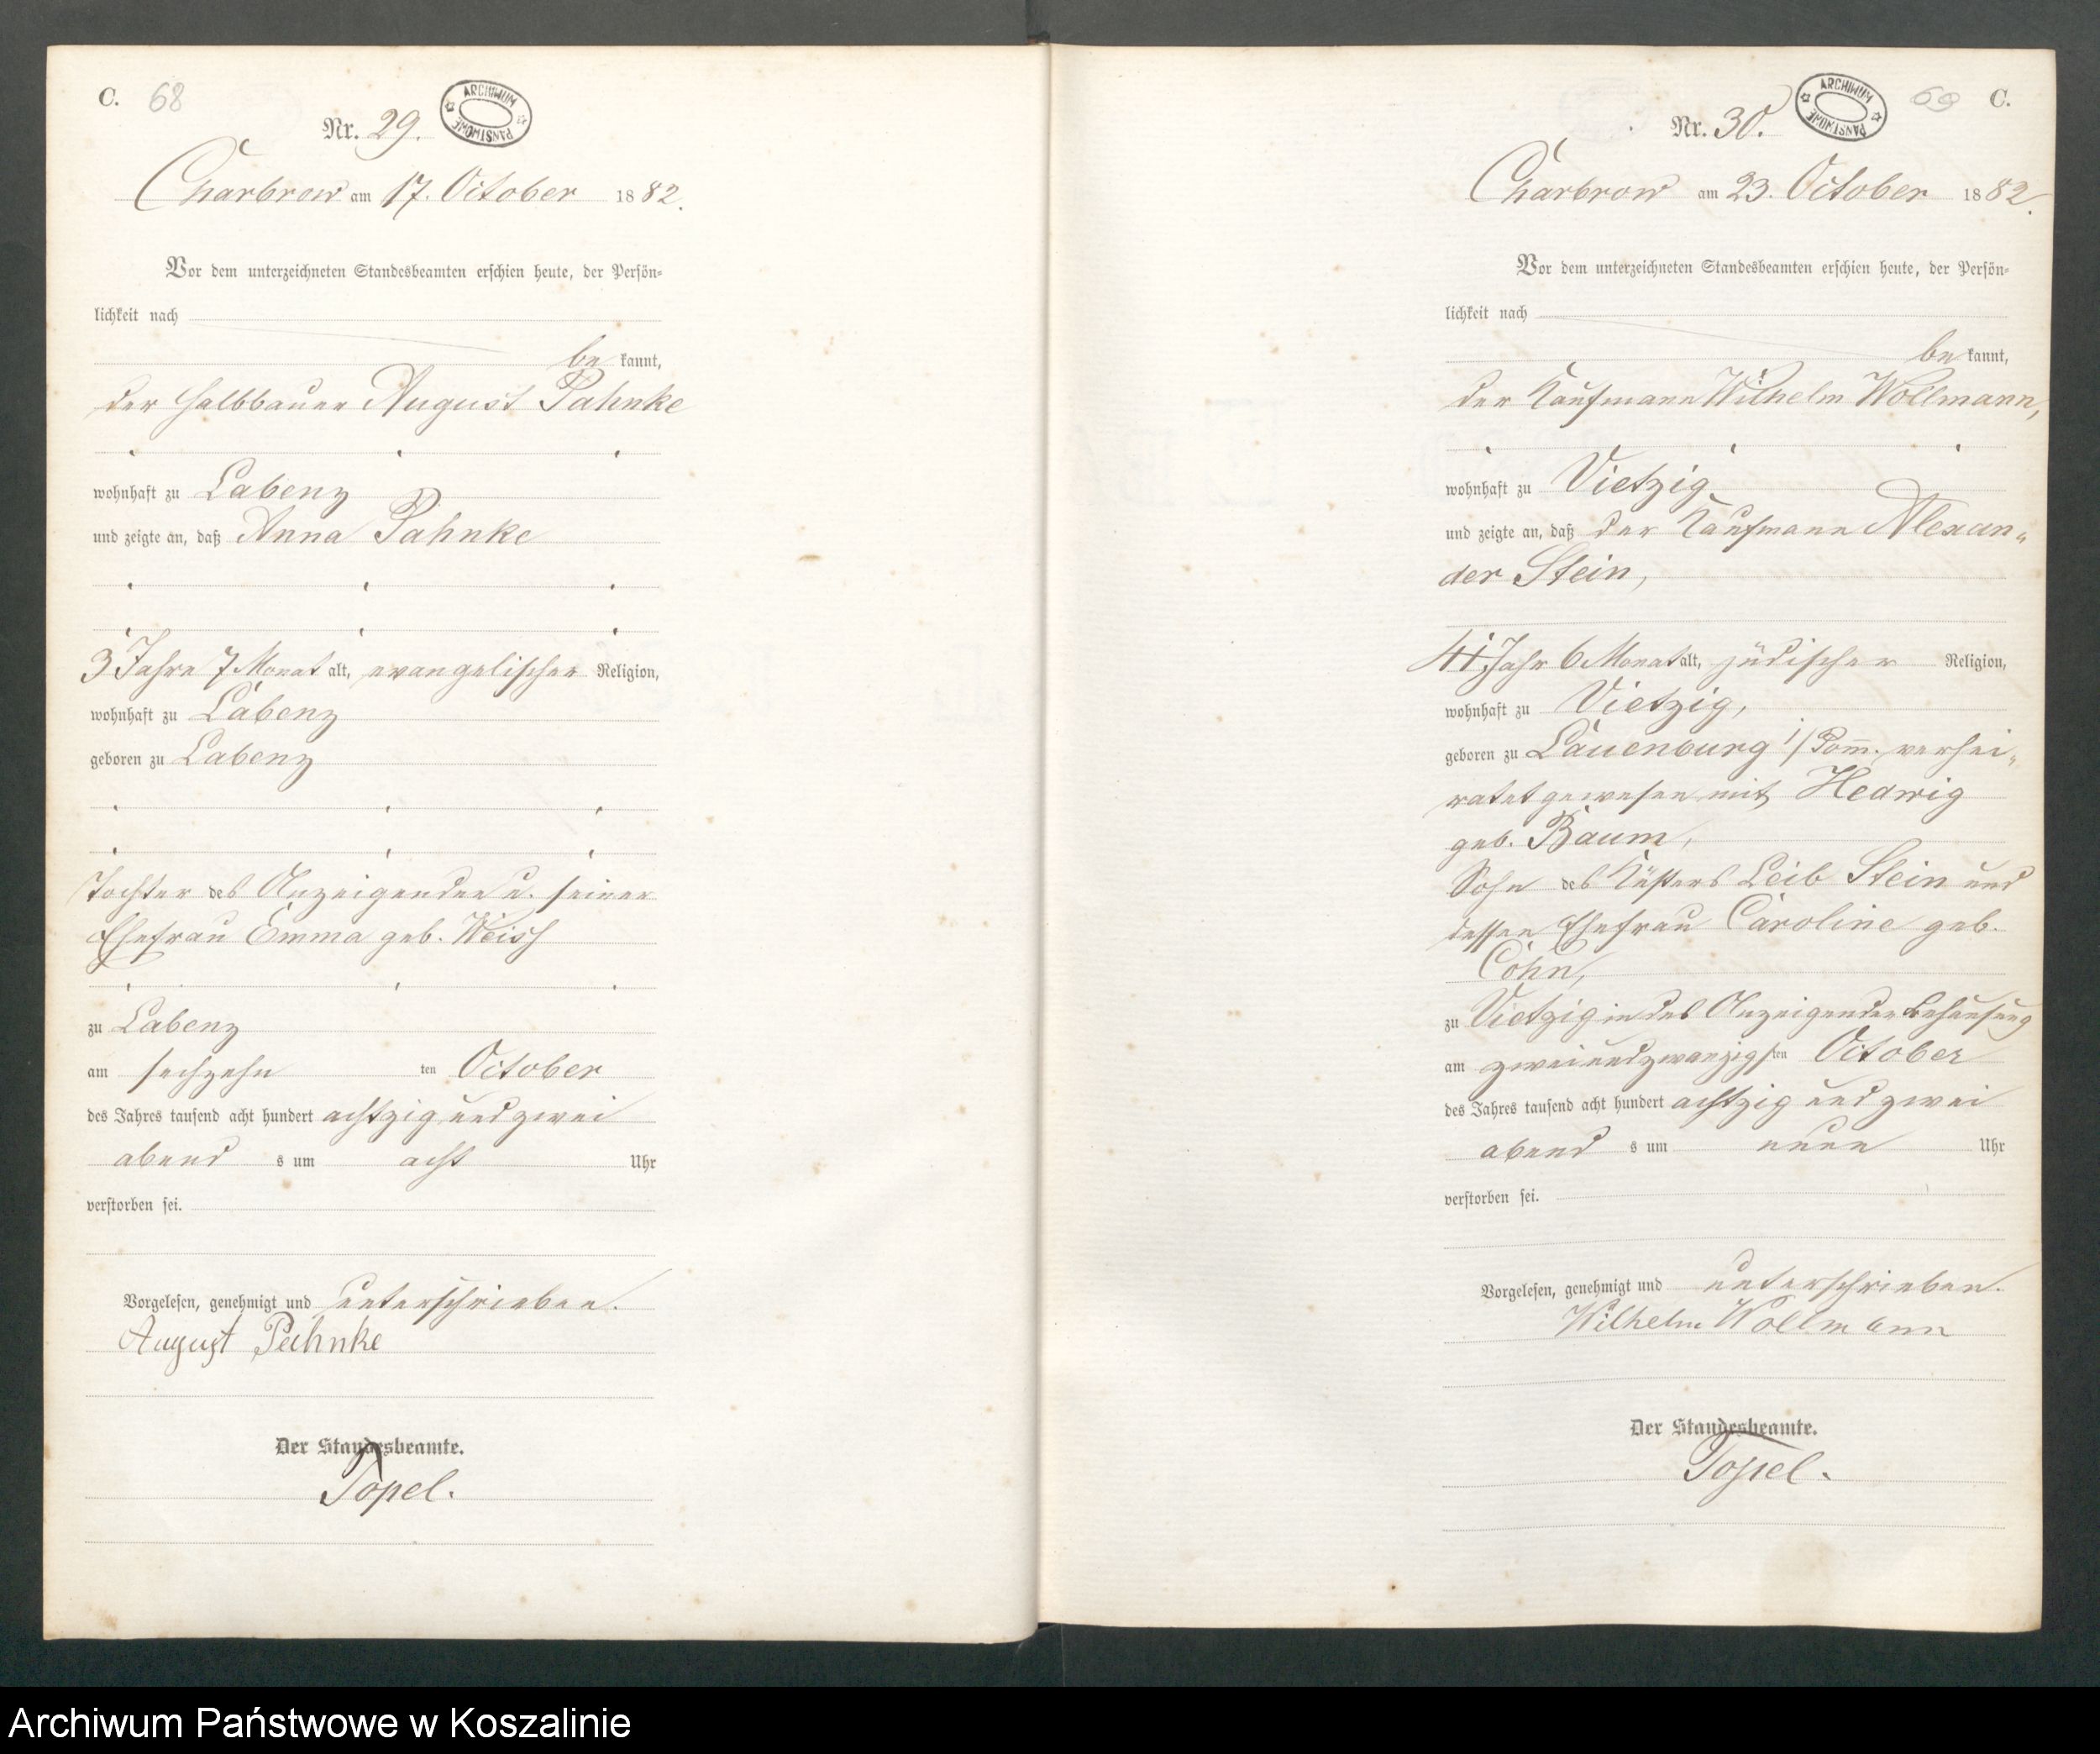 C. 68
Nr. 29.
ARCHIWUM PAŃSTWOWE
Charbrow am 17. October 1882.
Vor dem unterzeichneten Standesbeamten erschien heute, der Persön-
lichkeit nach
be kannt,
der Halbbauer August Pahnke
wohnhaft zu Labenz
und zeigte an, daß Anna Pahnke
3 Jahre 7 Monat alt, evangelischer Religion,
wohnhaft zu Labenz
geboren zu Labenz
Tochter des Anzeigenden u. seiner
Ehefrau Emma geb. Weiss
zu Labenz
am sechzehn ten October
des Jahres tausend acht hundert achtzig und zwei
abend s um acht Uhr
verstorben sei.
Vorgelesen, genehmigt und unterschrieben.
August Pahnke
Der Standesbeamte.
Topel.
69 C.
Nr. 30.
ARCHIWUM PAŃSTWOWE
Charbrow am 23. October 1882.
Vor dem unterzeichneten Standesbeamten erschien heute, der Persön-
lichkeit nach
be kannt,
der Kaufmann Wilhelm Wollmann,
wohnhaft zu Vietzig
und zeigte an, daß der Kaufmann Alexan-
der Stein,
41 Jahr 6 Monat alt, jüdischer Religion,
wohnhaft zu Vietzig,
geboren zu Lauenburg i/Pomm. verhei-
ratet gewesen mit Hedwig
geb. Baum,
Sohn des Küsters Leib Stein und
dessen Ehefrau Caroline geb.
Cohn,
zu Vietzig in des Anzeigenden Behausung
am zweiundzwanzigsten October
des Jahres tausend acht hundert achtzig und zwei
abend s um neun Uhr
verstorben sei.
Vorgelesen, genehmigt und unterschrieben.
Wilhelm Wollmann
Der Standesbeamte.
Topel.
Archiwum Państwowe w Koszalinie